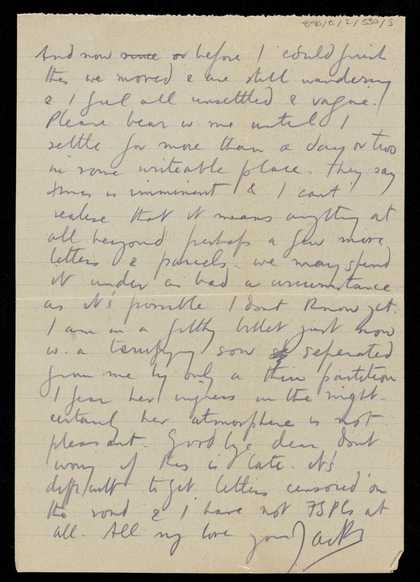 And now since or before I could finish
this we moved & are still wandering
& I feel all unsettled & vague.
Please bear w me until I
settle for more than a day or two
in some writeable place. They say
Xmas is imminent & I can't
realise that it means anything at
all beyond perhaps a few more
letters & parcels. we may spend
it under as bad a circumstance
as it's possible I dont know yet.
I am in a filthy billet just now
w. a terrifying sow seperated
from me by only a thin partition
I fear her ingress in the night.
certainly her atmosphere is not
pleasant. Goodbye dear dont
worry if this is late. it's
difficult to get letters censored on
the road & I have not FSPCs at
all. All my love your Jack